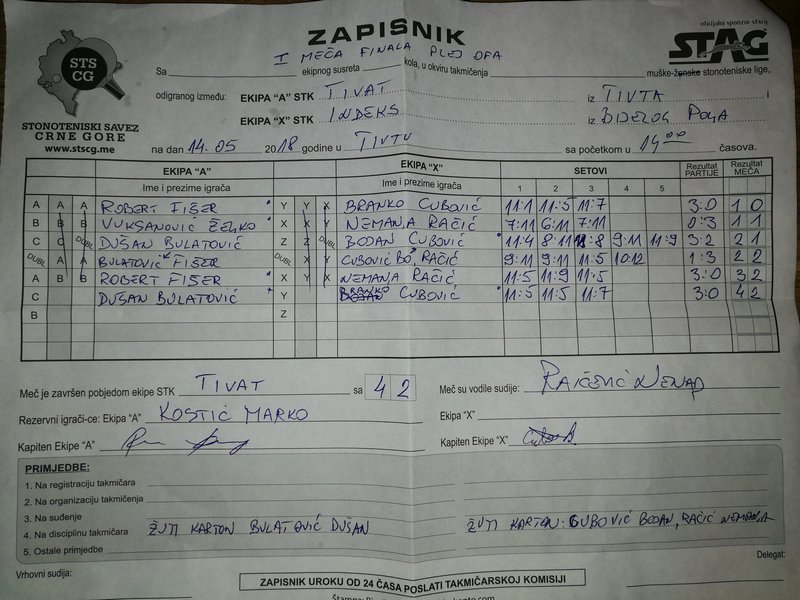 ZAPISNIK
I MEČA FINALA PLEJ OFA
STS
CG
STONOTENISKI SAVEZ
CRNE GORE
www.stscg.me
oficijalni sponzor stscg
STAG
Sa ekipnog susreta kola, u okviru takmičenja muške-ženske stonoteniske lige,
odigranog između: EKIPA "A" STK TIVAT iz TIVTA i
EKIPA "X" STK INDEKS iz BIJELOG POLJA
na dan 14.05 2018 godine u TIVTU sa početkom u 14 00 časova.
EKIPA "A" EKIPA "X" SETOVI Rezultat PARTIJE Rezultat MEČA
Ime i prezime igrača Ime i prezime igrača 1 2 3 4 5
A A A ROBERT FIŠER Y Y X BRANKO CUBOVIĆ 11:1 11:5 11:7 3:0 1 0
B B B VUKSANOVIĆ ŽELJKO X X Y NEMANJA RAČIĆ 7:11 6:11 7:11 0:3 1 1
C C DUBL DUŠAN BULATOVIĆ Z Z DUBL BODAN CUBOVIĆ 11:4 8:11 11:8 9:11 11:9 3:2 2 1
DUBL A A BULATOVIĆ FIŠER DUBL X Y CUBOVIĆ BO, RAČIĆ 9:11 9:11 11:5 10:12 1:3 2 2
A B B ROBERT FIŠER X Y X NEMANJA RAČIĆ 11:5 11:9 11:5 3:0 3 2
C DUŠAN BULATOVIĆ Y BRANKO CUBOVIĆ 11:5 11:5 11:7 3:0 4 2
B Z
Meč je završen pobjedom ekipe STK TIVAT sa 4 2 Meč su vodile sudije: RAIČEVIĆ NENAD
Rezervni igrači-ce: Ekipa "A" KOSTIĆ MARKO Ekipa "X"
Kapiten Ekipe "A" Kapiten Ekipe "X"
PRIMJEDBE:
1. Na registraciju takmičara
2. Na organizaciju takmičenja
3. Na suđenje
4. Na disciplinu takmičara ŽUTI KARTON BULATOVIĆ DUŠAN ŽUTI KARTON: CUBOVIĆ BODAN, RAČIĆ NEMANJA
5. Ostale primjedbe
Delegat:
Vrhovni sudija:
ZAPISNIK UROKU OD 24 ČASA POSLATI TAKMIČARSKOJ KOMISIJI